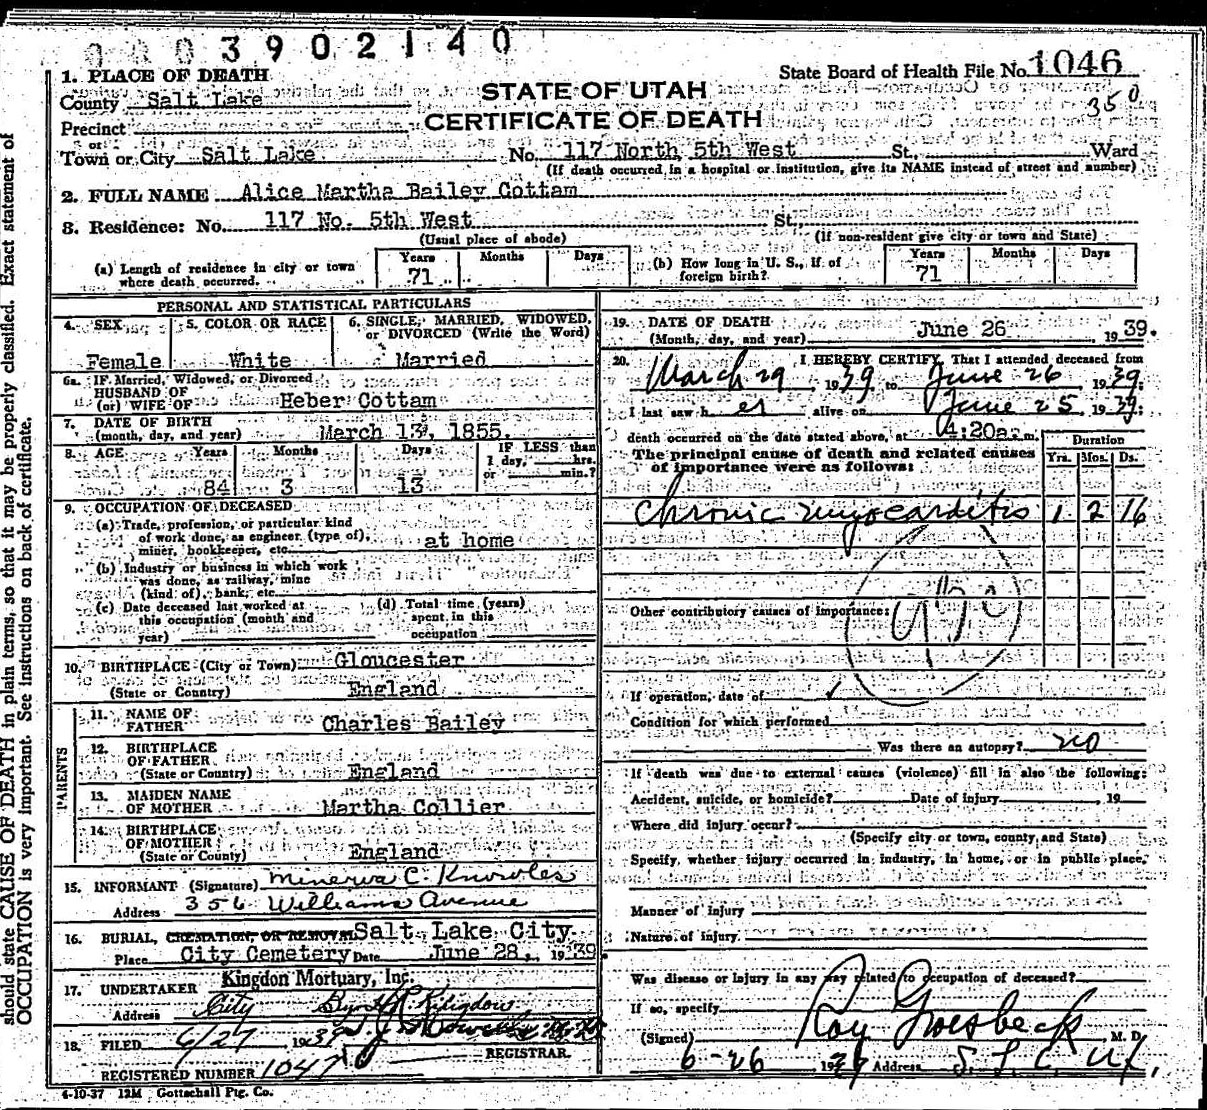 0003902140
State Board of Health File No. 1046
350
1. PLACE OF DEATH
STATE OF UTAH
County Salt Lake
CERTIFICATE OF DEATH
Precinct
or
Town or City Salt Lake No. 117 North 5th West St., Ward
(If death occurred in a hospital or institution, give its NAME instead of street and number)
2. FULL NAME Alice Martha Bailey Cottam
3. Residence: No. 117 No. 5th West St.,
(Usual place of abode) (If non-resident give city or town and State)
(a) Length of residence in city or town where death occurred. Years 71 Months Days
(b) How long in U. S., if of foreign birth? Years 71 Months Days
PERSONAL AND STATISTICAL PARTICULARS
4. SEX 5. COLOR OR RACE 6. SINGLE, MARRIED, WIDOWED, or DIVORCED (Write the Word)
Female White Married
6a. IF Married, Widowed, or Divorced
HUSBAND OF
(or) WIFE OF Heber Cottam
7. DATE OF BIRTH
(month, day, and year) March 13, 1855.
8. AGE Years Months Days IF LESS than
1 day, hrs.
or min.?
84 3 13
9. OCCUPATION OF DECEASED
(a) Trade, profession, or particular kind
of work done, as engineer (type of),
miner, bookkeeper, etc. at home
(b) Industry or business in which work
was done, as railway, mine
(kind of), bank, etc.
(c) Date deceased last worked at
this occupation (month and
year)
(d) Total time (years)
spent in this
occupation
10. BIRTHPLACE (City or Town) Gloucester
(State or Country) England
PARENTS
11. NAME OF
FATHER Charles Bailey
12. BIRTHPLACE
OF FATHER
(State or Country) England
13. MAIDEN NAME
OF MOTHER Martha Collier
14. BIRTHPLACE
OF MOTHER
(State or County) England
15. INFORMANT (Signature) Minerva C. Knowles
Address 356 Williams Avenue
16. BURIAL, CREMATION, OR REMOVAL Salt Lake City
Place City Cemetery Date June 28, 1939.
17. UNDERTAKER Kingdon Mortuary, Inc.
Address City By Kingdon
18. FILED 6/27 1939
REGISTRAR.
REGISTERED NUMBER 1047
4-10-37 12M Gottschall Ptg. Co.
19. DATE OF DEATH
(Month, day, and year) June 26 1939.
20. I HEREBY CERTIFY, That I attended deceased from
March 29 1939 to June 26, 1939;
I last saw her alive on June 25, 1939;
death occurred on the date stated above, at 4:20a.m.
The principal cause of death and related causes
of importance were as follows:
Duration
Yrs. Mos. Ds.
Chronic myocarditis 1 2 16
Other contributory causes of importance:
If operation, date of
Condition for which performed
Was there an autopsy? no
If death was due to external causes (violence) fill in also the following:
Accident, suicide, or homicide? Date of injury , 19
Where did injury occur?
(Specify city or town, county, and State)
Specify whether injury occurred in industry, in home, or in public place,
Manner of injury
Nature of injury
Was disease or injury in any way related to occupation of deceased?
If so, specify
(Signed) Roy Groesbeck M. D.
6-26 1939 Address S. L. C. Ut.
should state CAUSE OF DEATH in plain terms, so that it may be properly classified. Exact statement of
OCCUPATION is very important. See instructions on back of certificate.